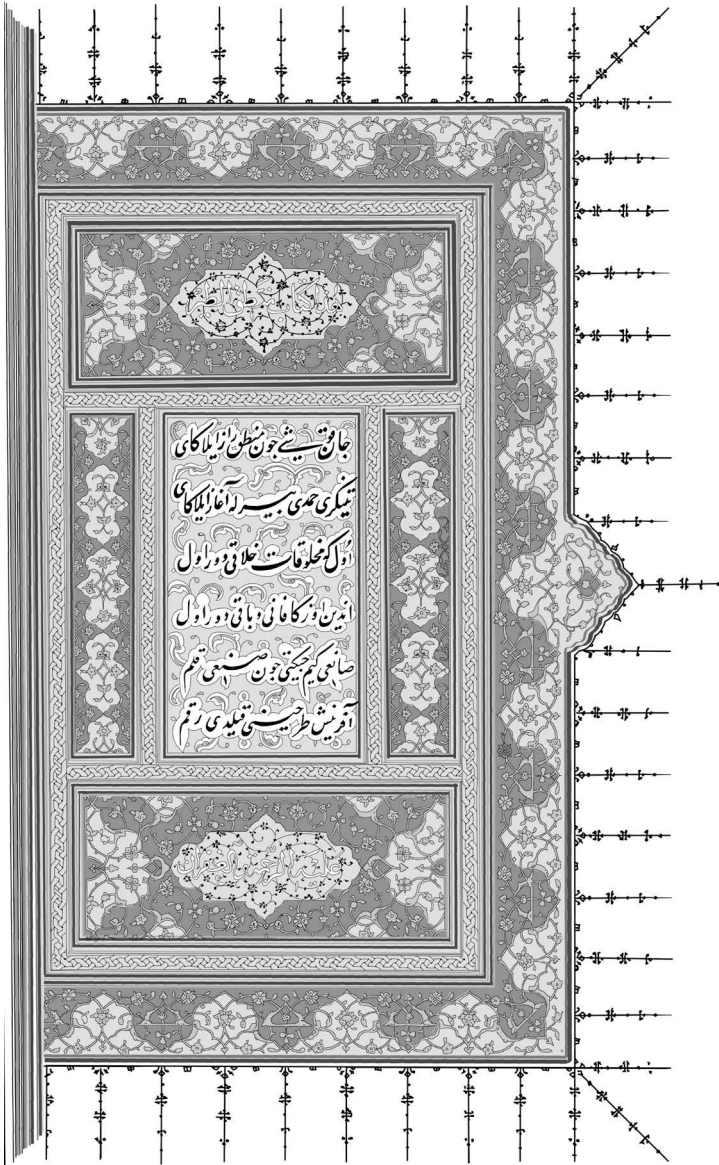 جان قوشی چون منطق راز ایلاکای
تینکری حمدی بیرله آغاز ایلاکای
اول که مخلوقات خلاقی دور اول
اندین اوزکا فانی و باقی دور اول
صانعی کیم چیکتی چون صنعی قلم
آفرینیش طرحینی قیلدی رقم
علیه الرحمة والغفران